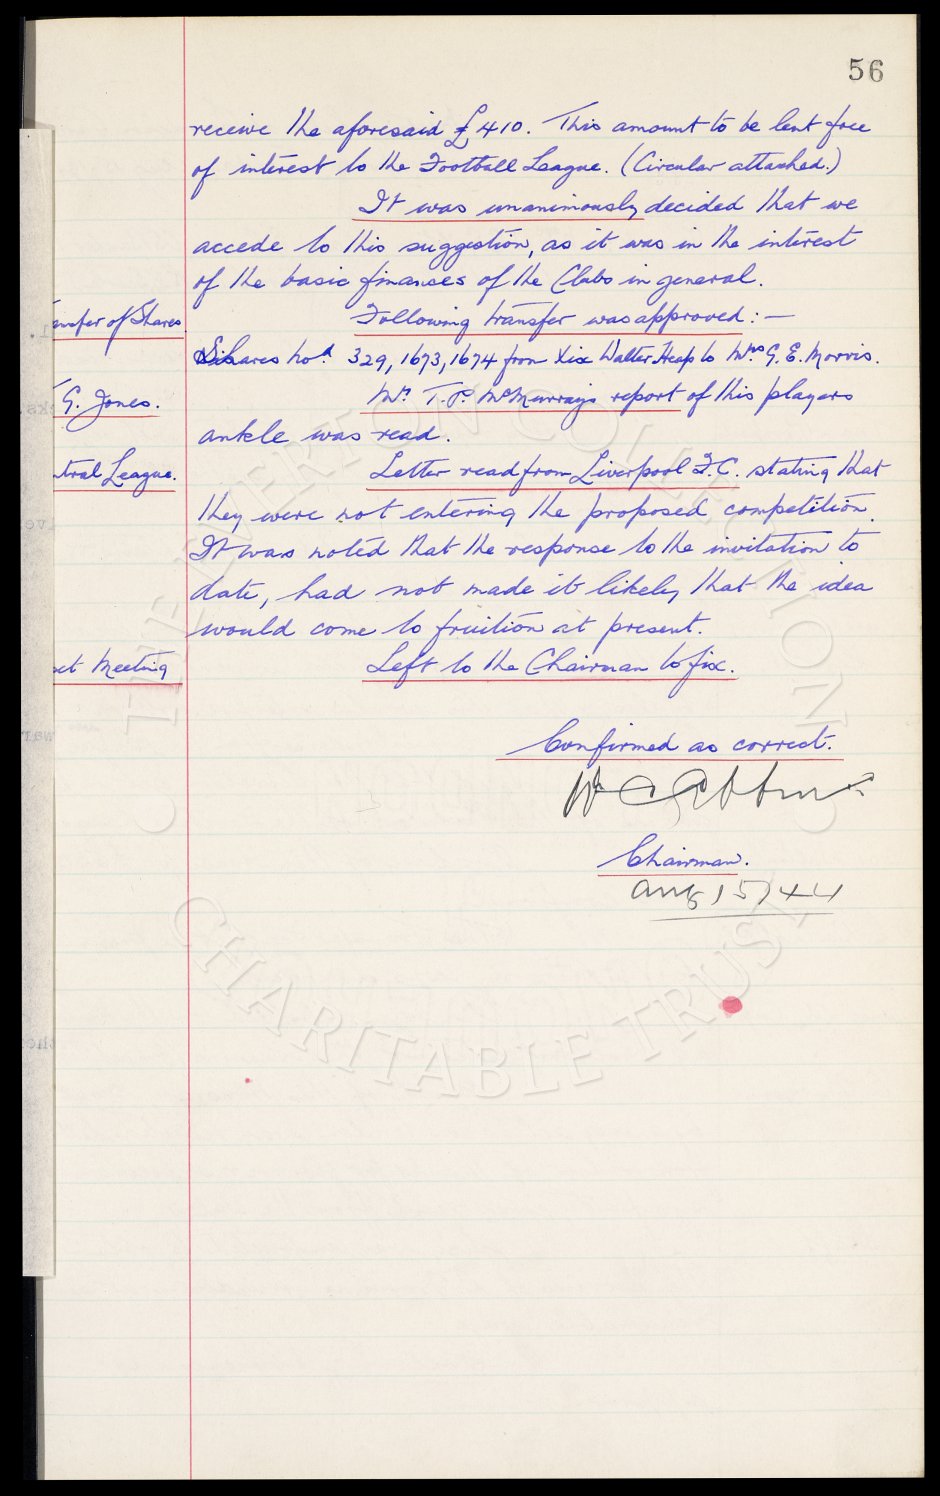 56
receive the aforesaid £410. This amount to be lent free
of interest to the Football League. (Circular attached.)
It was unanimously decided that we
accede to this suggestion, as it was in the interest
of the basic finances of the Clubs in general.
ansfer of Shares
Following transfer was approved: —
Shares no.s 329, 1673, 1674 from Walter Heap to Mrs G. E. Morris.
G. Jones.
Mr. T. P. McMurray's report of this players
ankle was read.
ntral League.
Letter read from Liverpool F.C. stating that
they were not entering the proposed competition.
It was noted that the response to the invitation to
date, had not made it likely that the idea
would come to fruition at present.
Meeting
Left to the Chairman to fix.
Confirmed as correct.
Chairman.
Aug 15/44
THE EVERTON COLLECTION
CHARITABLE TRUST